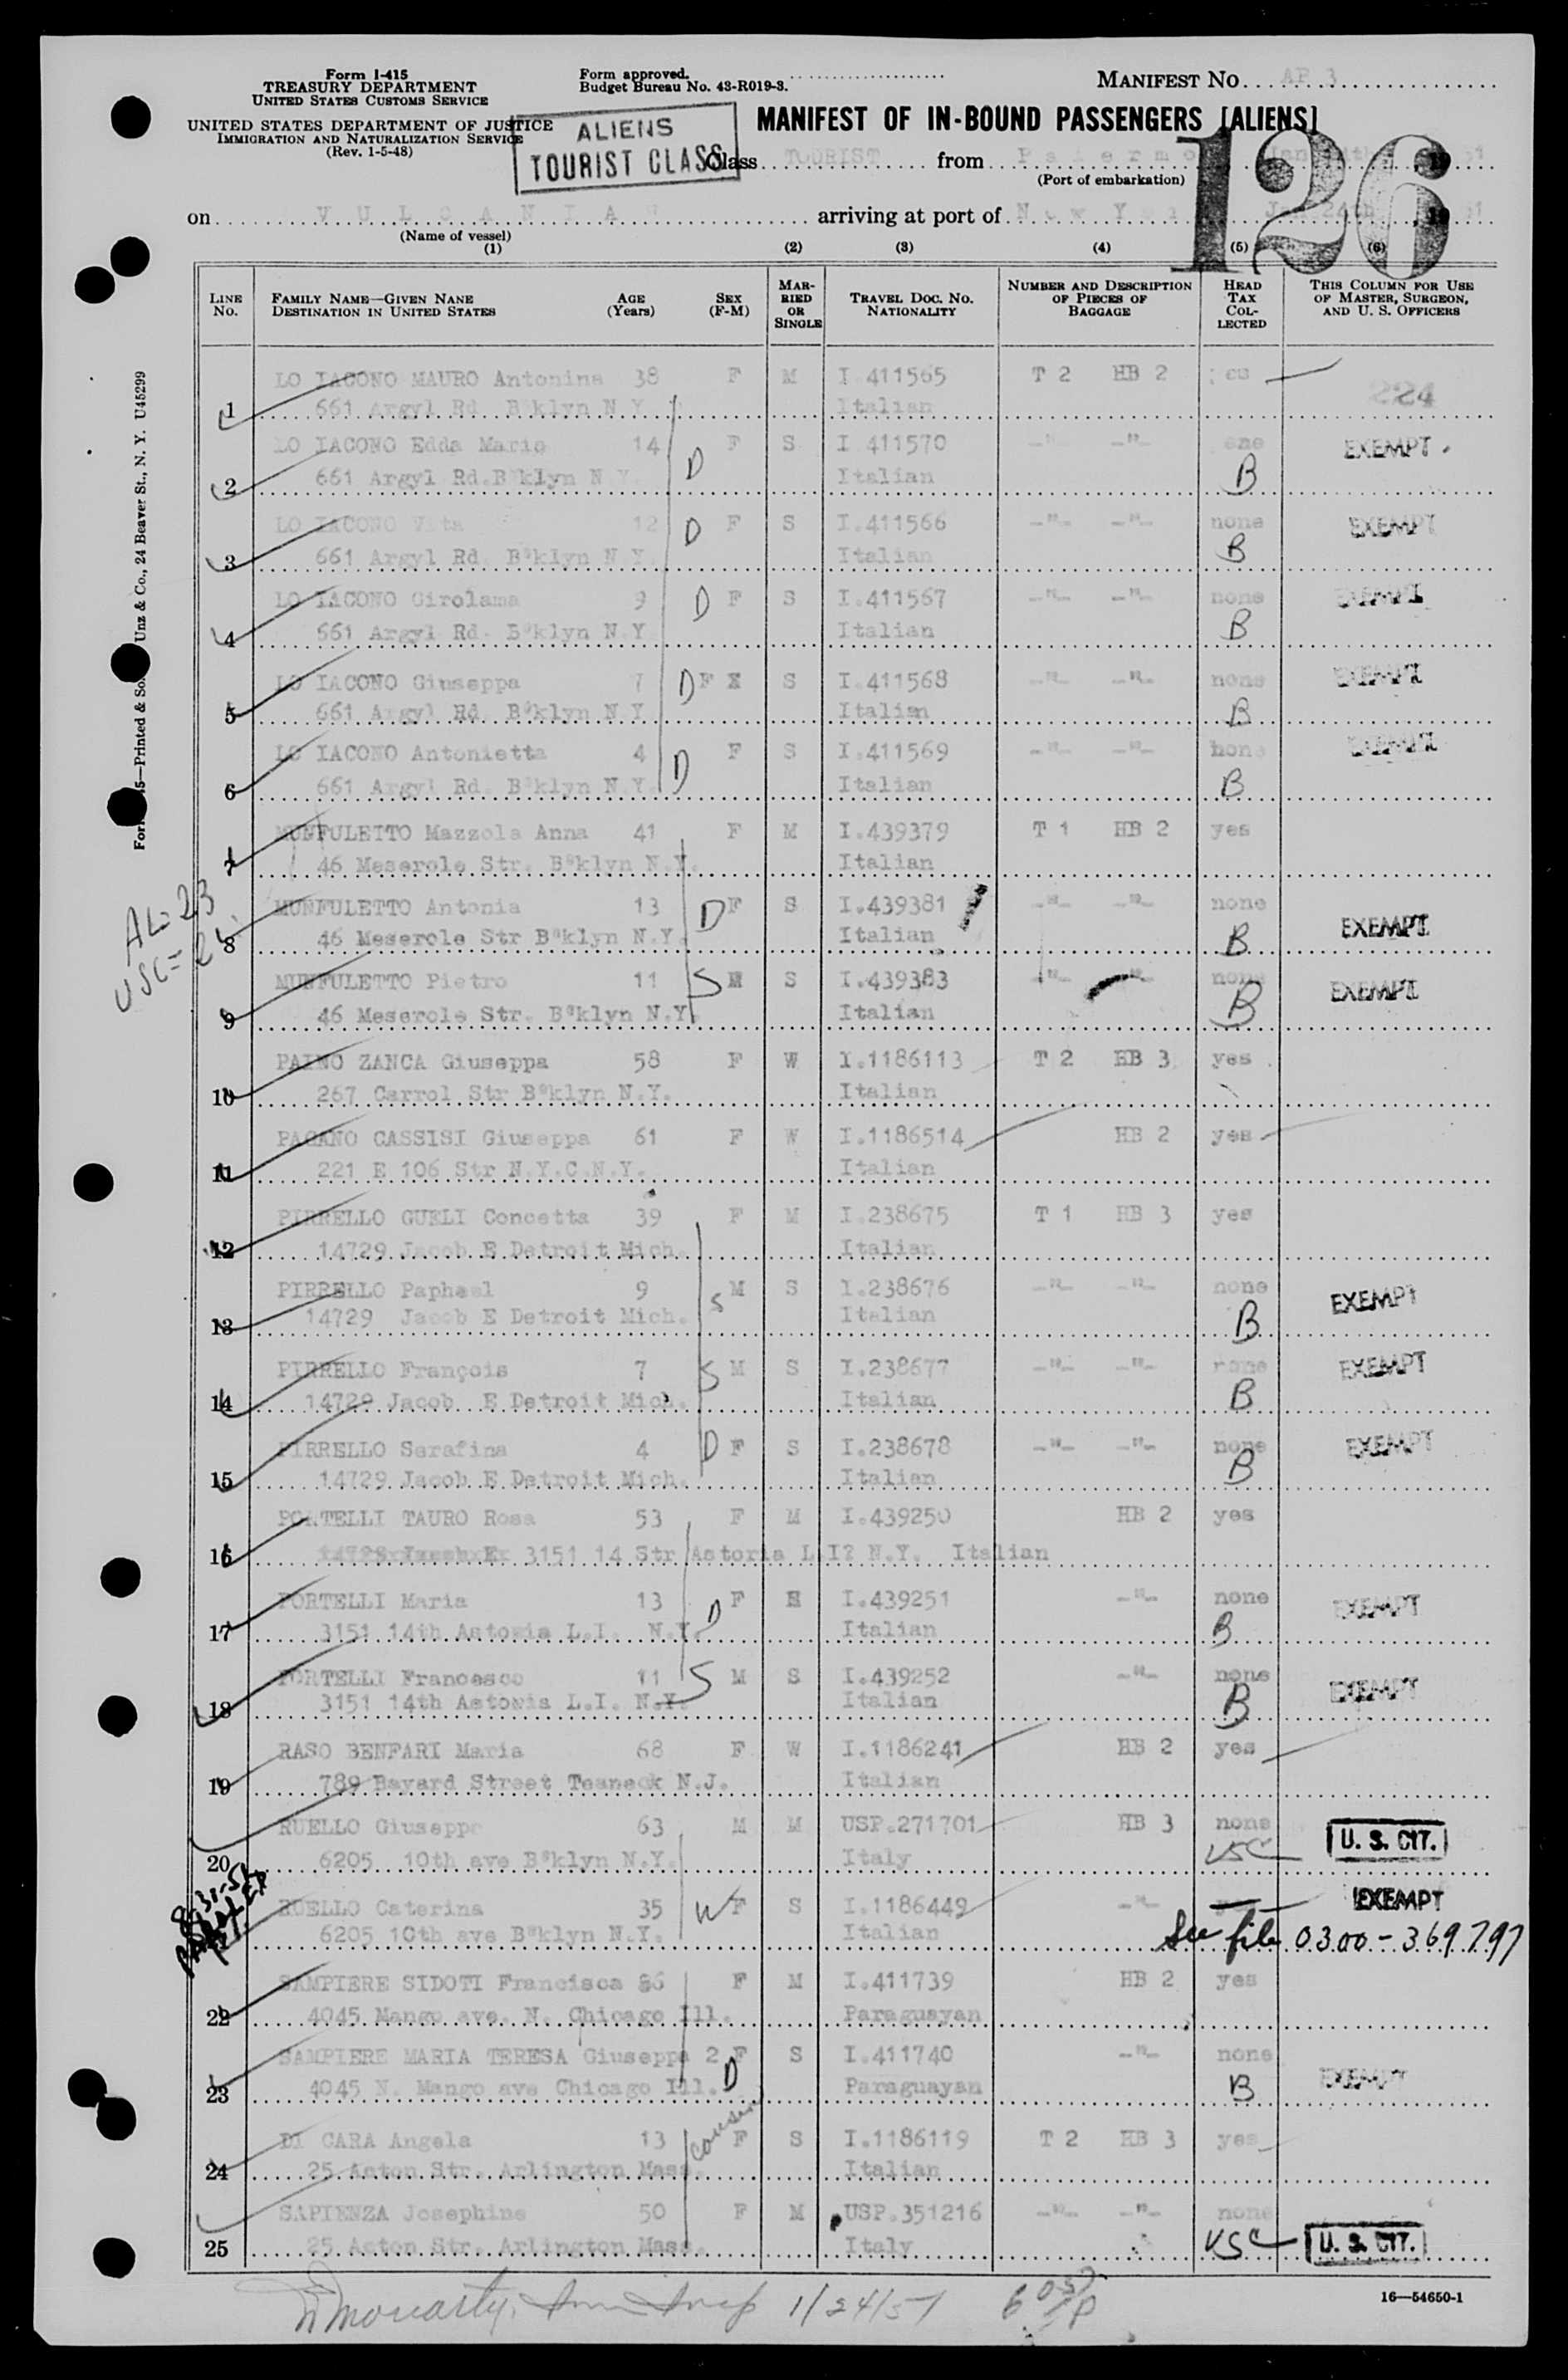 Form I-415
TREASURY DEPARTMENT
UNITED STATES CUSTOMS SERVICE
UNITED STATES DEPARTMENT OF JUSTICE
IMMIGRATION AND NATURALIZATION SERVICE
(Rev. 1-5-48)
Form approved.
Budget Bureau No. 43-R019-3.
MANIFEST No. AP 3
ALIENS
TOURIST CLASS
MANIFEST OF IN-BOUND PASSENGERS [ALIENS]
126
Class TOURIST from Palermo
(Port of embarkation)
on VULCANIA arriving at port of New York Jan 24th
(Name of vessel)
(1) (2) (3) (4) (5) (6)
LINE No.
FAMILY NAME—GIVEN NANE DESTINATION IN UNITED STATES
AGE (Years)
SEX (F-M)
MARRIED OR SINGLE
TRAVEL DOC. NO. NATIONALITY
NUMBER AND DESCRIPTION OF PIECES OF BAGGAGE
HEAD TAX COLLECTED
THIS COLUMN FOR USE OF MASTER, SURGEON, AND U. S. OFFICERS
LO IACONO MAURO Antonina 38 F M I 411565 T 2 HB 2 yes
1 661 Argyl Rd B"klyn N Y Italian 224
LO IACONO Edda Maria 14 F S I 411570 -"- -"- EXEMPT
2 661 Argyl Rd.B"klyn N Y. D Italian B
LO IACONO Vita 12 D F S I.411566 -"- -"- none EXEMPT
3 661 Argyl Rd. B"klyn N Y. Italian B
LO IACONO Girolama 9 D F S I.411567 -"- -"- none EXEMPT
4 661 Argyl Rd. B"klyn N.Y Italian B
LO IACONO Giuseppa 7 D F X S I.411568 -"- -"- none EXEMPT
5 661 Argyl Rd. B"klyn N.Y Italian B
LO IACONO Antonietta 4 F S I.411569 -"- -"- none EXEMPT
6 661 Argyl Rd. B"klyn N.Y. D Italian B
MUNFULETTO Mazzola Anna 41 F M I.439379 T 1 HB 2 yes
7 46 Meserole Str. B"klyn N.Y. Italian
AL=23
USC=2
MUNFULETTO Antonia 13 D F S I.439381 -"- -"- none EXEMPT
8 46 Meserole Str B"klyn N.Y. Italian B
MUNFULETTO Pietro 11 S M S I.439383 -"- -"- none EXEMPT
9 46 Meserole Str. B"klyn N.Y. Italian B
PAINO ZANCA Giuseppa 58 F W I.1186113 T 2 HB 3 yes
10 267 Carrol Str B"klyn N.Y. Italian
PAGANO CASSISI Giuseppa 61 F W I.1186514 HB 2 yes
11 221 E 106 Str N.Y.C.N.Y. Italian
PIRRELLO GUELI Concetta 39 F M I.238675 T 1 HB 3 yes
12 14729 Jacob E Detroit Mich. Italian
PIRRELLO Paphael 9 M S I.238676 -"- -"- none EXEMPT
13 14729 Jacob E Detroit Mich. S Italian B
PIRRELLO François 7 S M S I.238677 -"- -"- none EXEMPT
14 14729 Jacob E Detroit Mich. Italian B
PIRRELLO Serafina 4 D F S I.238678 -"- -"- none EXEMPT
15 14729 Jacob E Detroit Mich. Italian B
PORTELLI TAURO Rosa 53 F M I.439250 HB 2 yes
16 3151 14 Str Astoria L.I? N.Y. Italian
PORTELLI Maria 13 F I.439251 -"- none EXEMPT
17 3151 14th Astoria L.I. N.Y. D Italian B
PORTELLI Francesco 11 S M S I.439252 -"- none EXEMPT
18 3151 14th Astoria L.I. N.Y. Italian B
RASO BENFARI Maria 68 F W I.1186241 HB 2 yes
19 789 Bayard Street Teaneck N.J. Italian
RUELLO Giuseppe 63 M M USP.271701 HB 3 none U. S. CIT.
20 6205 10th ave B"klyn N.Y. Italy USC
RUELLO Caterina 35 W F S I.1186449 -"- EXEMPT
6205 10th ave B"klyn N.Y. Italian See file 0300-369797
SAMPIERE SIDOTI Francisca F M I.411739 HB 2 yes
22 4045 Mango ave. N. Chicago Ill. Paraguayan
SAMPIERE MARIA TERESA Giuseppa 2 F S I.411740 -"- none EXEMPT
23 4045 N. Mango ave Chicago Ill. D Paraguayan B
DI CARA Angela 13 cousin F S I.1186119 T 2 HB 3 yes
24 25 Aston Str. Arlington Mass. Italian
SAPIENZA Josephine 50 F M USP.351216 -"- -"- none
25 25 Aston Str. Arlington Mass. Italy USC U. S. CIT.
1/24/51
16—54650-1